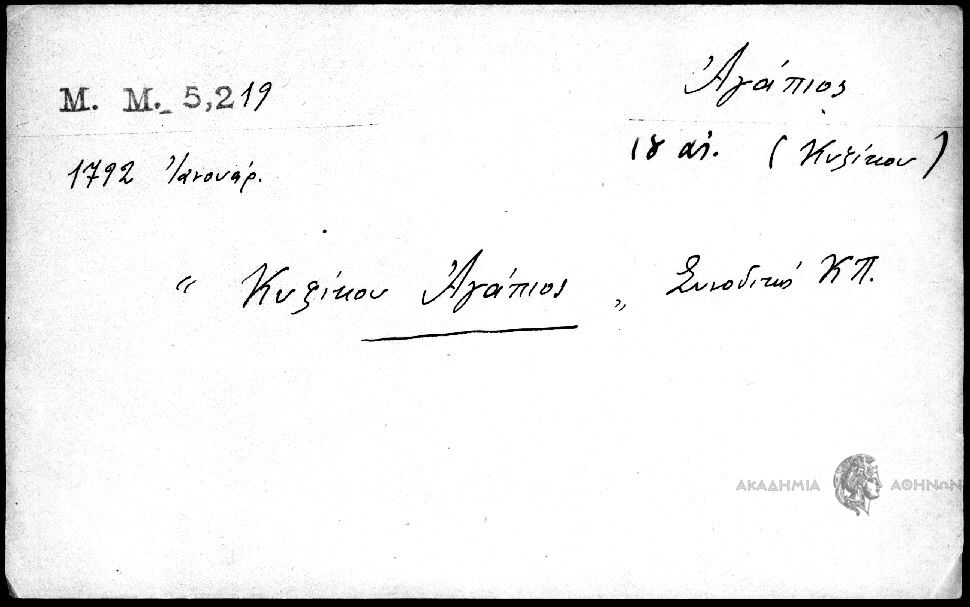 Μ. Μ. 5,219
Ἀγάπιος
18 αἰ. (Κυζίκου)
1792 Ἰανουάρ.
“ Κυζίκου Ἀγάπιος „ Συνοδικό ΚΠ.
ΑΚΑΔΗΜΙΑ ΑΘΗΝΩΝ